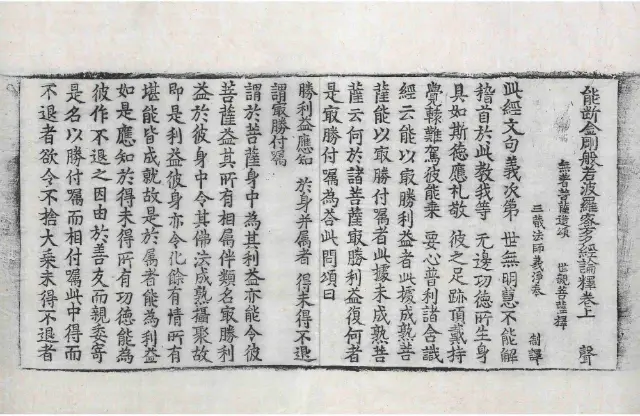 能斷金剛般若波羅蜜多經論釋卷上 聲
無著菩薩造頌 世親菩薩釋
三藏法師義淨奉 制譯
此經文句義次第 世無明慧不能解
稽首於此教我等 無邊功德所生身
具如斯德應礼敬 彼之足跡頂戴持
覺轅難駕彼能乘 要心普利諸含識
經云能以冣勝利益者此據成熟菩
薩能以冣勝付囑者此據未成熟菩
薩云何於諸菩薩冣勝利益復何者
是冣勝付囑為答此問頌曰
勝利益應知 於身并屬者 得未得不退
謂冣勝付囑
謂於菩薩身中為其利益亦能令彼
菩薩益其所有相屬伴類名冣勝利
益於彼身中令其佛法成熟攝聚故
即是利益彼身亦令化餘有情所有
堪能皆成就故是於屬者能為利益
如是應知於得未得所有功德能為
彼作不退之因由於善友而親委寄
是名以勝付囑而相付囑此中得而
不退者欲令不捨大乘未得不退者